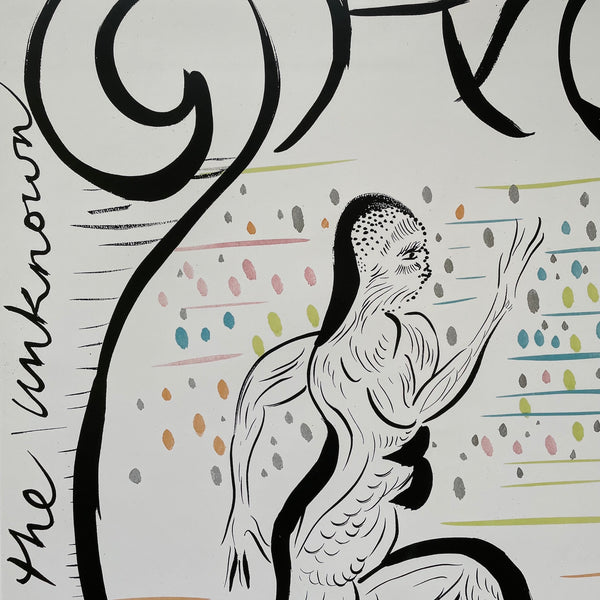 the unknown